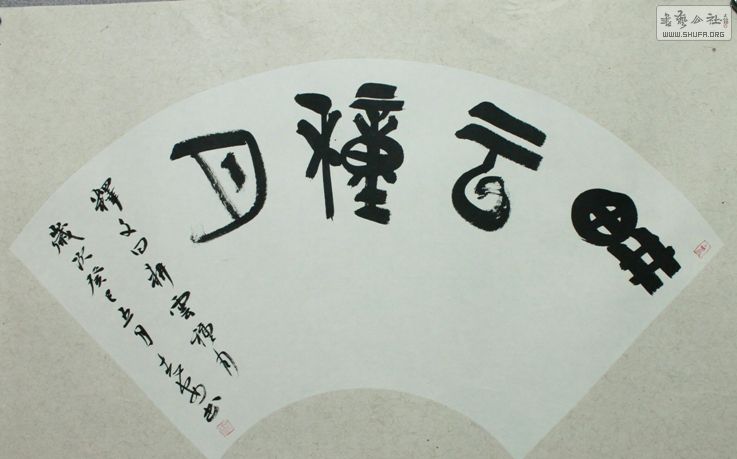 畊云種月
釋文曰耕雲種月
歲次癸巳五月書
書藝公社
WWW.SHUFA.ORG